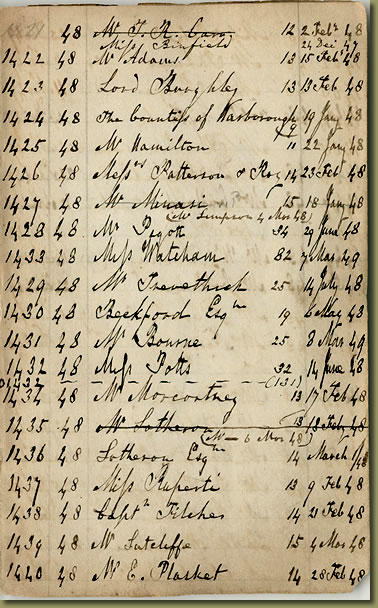 48 Mr T. R. Cam 12 2 Feby 48
Miss Binfield 24 Dec 47
1422 48 Mr Adams 13 15 Feby 48
1423 48 Lord Burghley 13 13 Feb 48
1424 48 The Countess of Warborough 19 Jany 48
9
1425 48 Mr Hamilton 11 22 Jany 48
1426 48 Messrs Patterson & 14 23 Feb 48
1427 48 Mr Minasi 15 18 Jany 48
(Mr Simpson 4 Mar 48)
1428 48 Mr Pigott 34 29 June 48
1433 48 Miss Wateham 82 7 Mar 49
1429 48 Mr Trevethick 25 14 July 48
1430 48 Beckford Esqre 19 6 May 48
1431 48 Mr Bourne 25 8 Mar 49
1432 48 Miss Potts 32 14 June 48
1432 (131)
1434 48 Mr Morcoutney 13 17 Feb 48
1435 48 Mr Sotheron 13 18 Feby 48
(Mr — 6 Mar 48)
1436 48 Sotheron Esqre 14 March 1/48
1437 48 Miss Ruperti 13 9 Feb 48
1438 48 Captn Filcher 14 21 Feb 48
1439 48 Mr Sutcliffe 15 4 Mar 48
1440 48 Mr E. Plasket 14 28 Feb 48